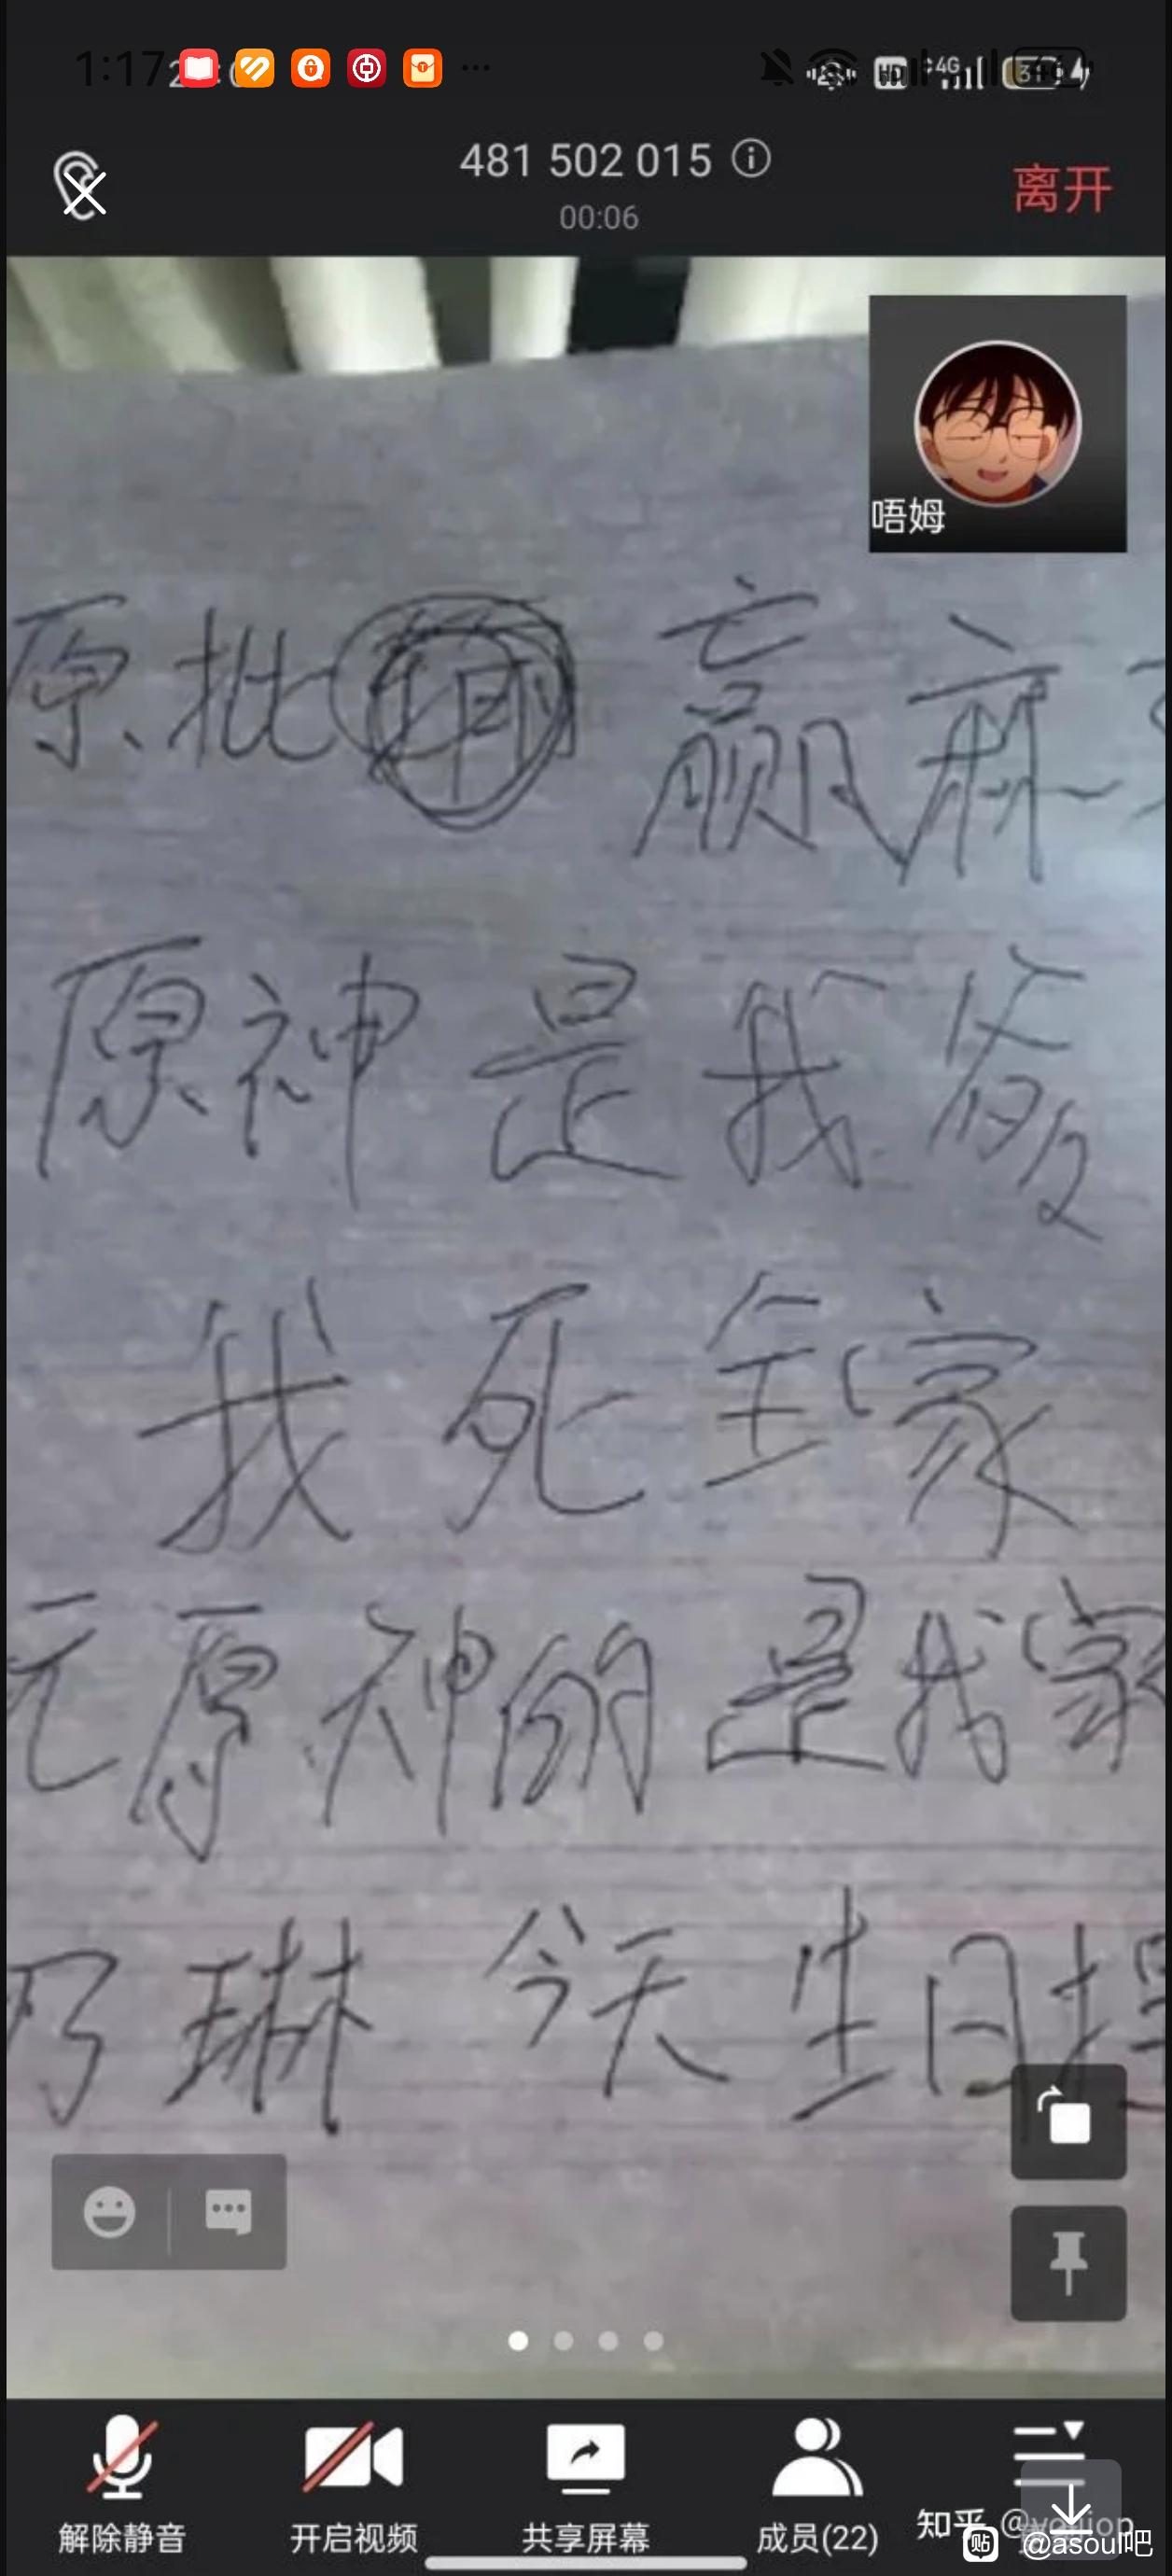 1:17
4G
481 502 015
00:06
离开
唔姆
原批 赢麻
原神是我爹
我死全家
元原神的是我家
乃琳 今天生日
解除静音
开启视频
共享屏幕
成员(22)
知乎
贴 @asoul吧